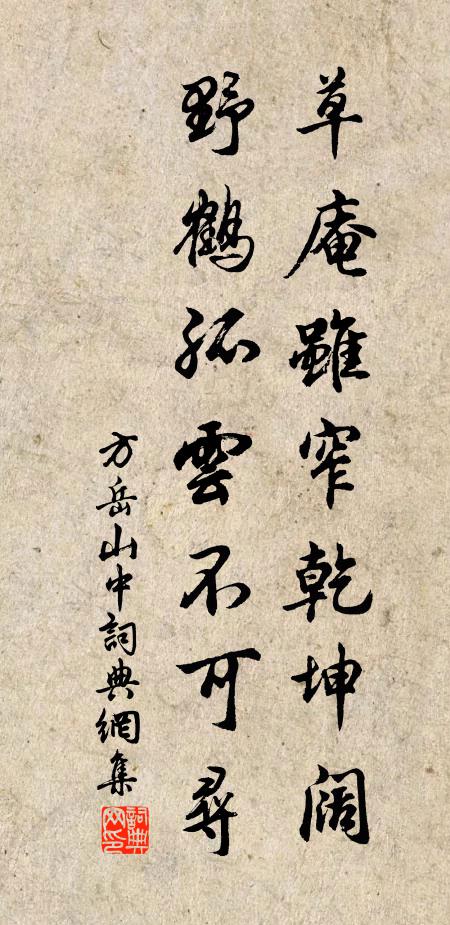 草庵雖窄乾坤闊
野鶴孤雲不可尋
方岳山中詞典網集
詞典網印